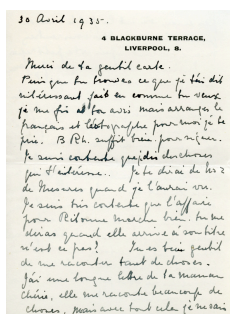 30 Avril 1935.
4 BLACKBURNE TERRACE,
LIVERPOOL, 8.
Merci de ta gentil carte.
Puis que tu trouves ce que je t'ai dit
intéressant fait en comme tu veux
je me fis à ton avis mais arranges le
français et l'orthographe pour moi je te
prie. B Rh. suffit bien pour signer.
Je suis contente que dis des choses
qui t'intéresse. Je te dirai de No 2
de Mesures quand je l'aurai vu.
Je suis très contente que l'affaire
pour Ribonne marche bien. tu me
diras quand elle arrive à son titre
n'est ce pas? Tu es bien gentil
de me raconter tant de choses.
J'ai une longue lettre de ta Maman
chérie, elle me raconte beaucoup de
choses, mais avec tout cela je ne sais